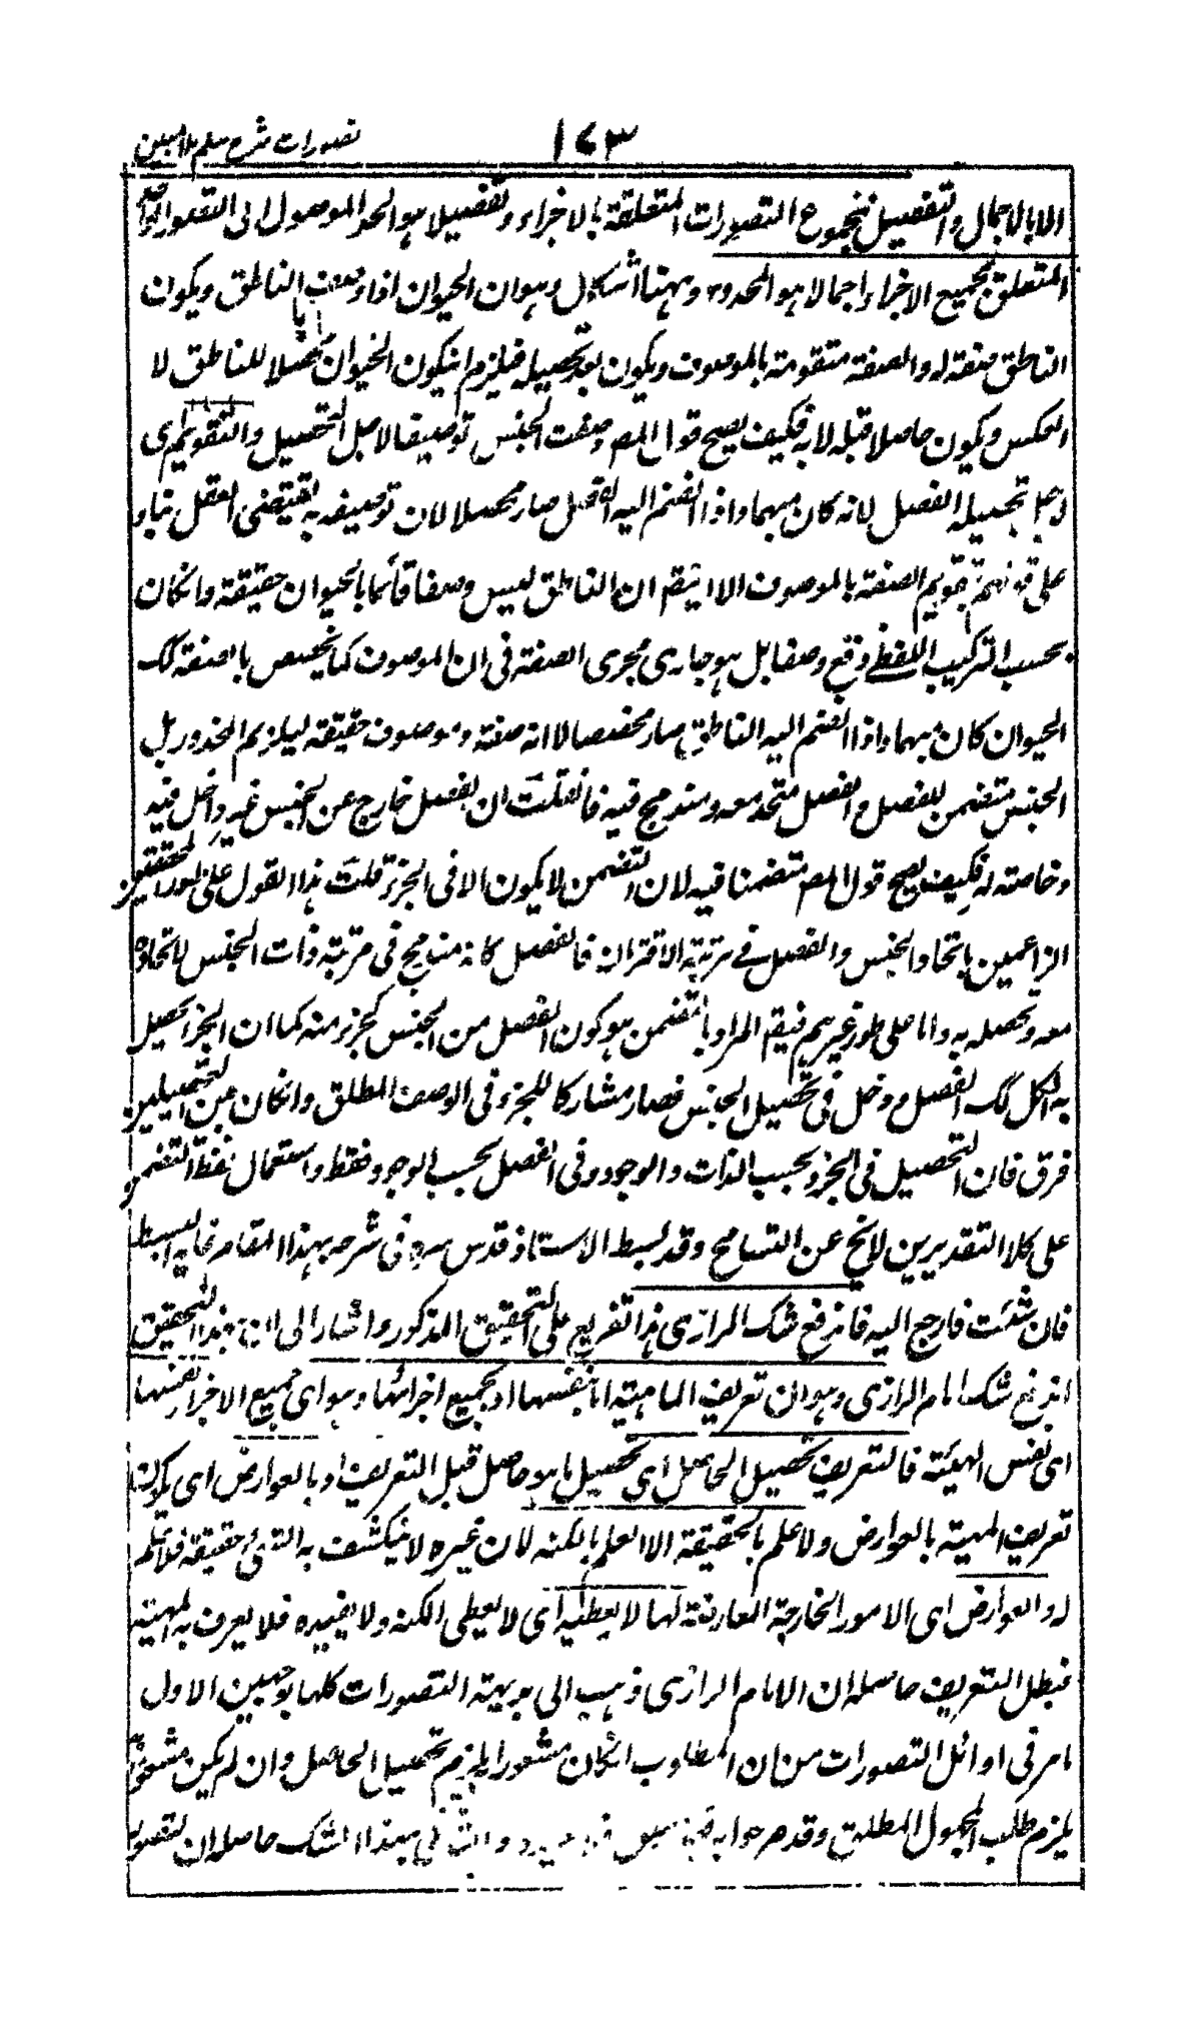 ١٧٣ تصورات شرح سلم ملا مبين
الا بالاجمال والتفصيل فمجموع التصورات المتعلقة بالاجزاء تفصيلا هو الحد الموصول الى التصور الواحد
المتعلق بجميع الاجزاء اجمالا هو المحدود وههنا اشكال وهو ان الحيوان اذا وصف بالناطق ويكون
الناطق صفة له والصفة متقومة بالموصوف ويكون بعد تحصيله فيلزم انيكون الحيوان محصلا للناطق لا
العكس ويكون حاصلا قبله لا به فكيف يصح قول المصـ وصفت الجنس توصيفا لاجل التحصيل والتقويم اى
لاجل تحصيله الفصل لانه كان مبهما واذا انضم اليه الفصل صار محصلا لان توصيفه به يقتضى العقل بناء
على تقويم الصفة بالموصوف الا ان يقم ان الناطق ليس وصفا قائما بالحيوان حقيقة وانكان
بحسب التركيب اللفظى وقع وصفا بل هو جار مجرى الصفة فى ان الموصوف كما يخصص بالصفة كك
الحيوان كان مبهما واذا انضم اليه الناطق صار مخصصا لا انه صفة وموصوف حقيقة ليلزم المحذور بل
الجنس متضمن للفصل والفصل متحد معه ومندمج فيه فانقلت ان الفصل خارج عن الجنس غير داخل فيه
وخاصته له فكيف يصح قول المصـ متضمنا فيه لان التضمن لا يكون الا فى الجزء قلت هذا القول على طور المحققين
الزاعمين باتحاد الجنس والفصل فى مرتبة الاقتران فالفصل كانه مندمج فى مرتبة ذات الجنس لاتحاده
معه وتحصله به واما على طور غيرهم فيقم المراد بالتضمن هو كون الفصل من الجنس كجزء منه كما ان الجزء يحصل
به الكل كك الفصل دخل فى تحصيل الجنس فصار مشاركا للجزء فى الوصف المطلق وانكان بين التحصيلين
فرق فان التحصيل فى الجزء بحسب الذات والوجود وفى الفصل بحسب الوجود فقط واستعمال لفظ التضمن
على كلا التقديرين لا يخ عن التسامح وقد بسط الاستاذ قدس سره فى شرحه بهذا المقام غاية البسط
فان شئت فارجع اليه فاندفع شك الرازى هذا تفريع على التحقيق المذكور واشار الى ان بهذا التحقيق
اندفع شك الامام الرازى وهو ان تعريف الماهية اما بنفسها او بجميع اجزائها وهو اى جميع الاجزاء نفسها
اى نفس المهية فالتعريف تحصيل الحاصل اى تحصيل ما هو حاصل قبل التعريف او بالعوارض اى يكون
تعريف المهية بالعوارض ولا علم بالحقيقة الا العلم بالكنه لان غيره لا ينكشف به الشئ حقيقة فلا علم
له والعوارض اى الامور الخارجة العارضة لها لا يعطيه اى لا يعطى الكنه ولا يفيده فلا يعرف به المهية
فبطل التعريف حاصله ان الامام الرازى ذهب الى بديهية التصورات كلها بوجهين الاول
ما مر فى اوائل التصورات من ان المطلوب انكان مشعورا يلزم تحصيل الحاصل وان لم يكن مشعورا
يلزم طلب المجهول المطلق وقد مر جوابه فيما سبق والثانى بهذا الشك حاصله ان تصور